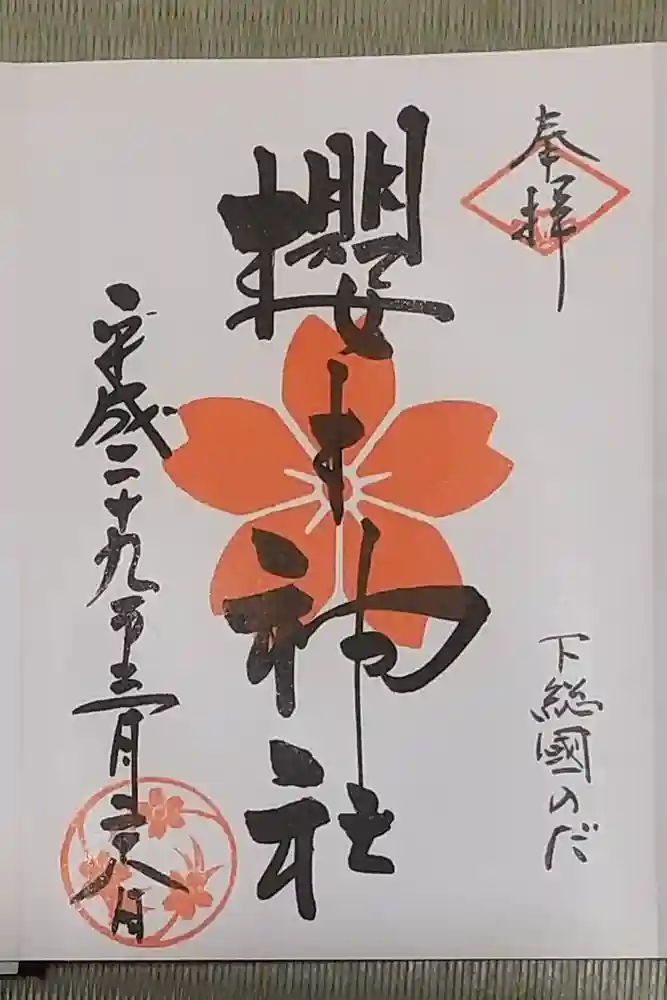 奉拝
下総國のだ
櫻木神社
平成二十九年三月二十八日